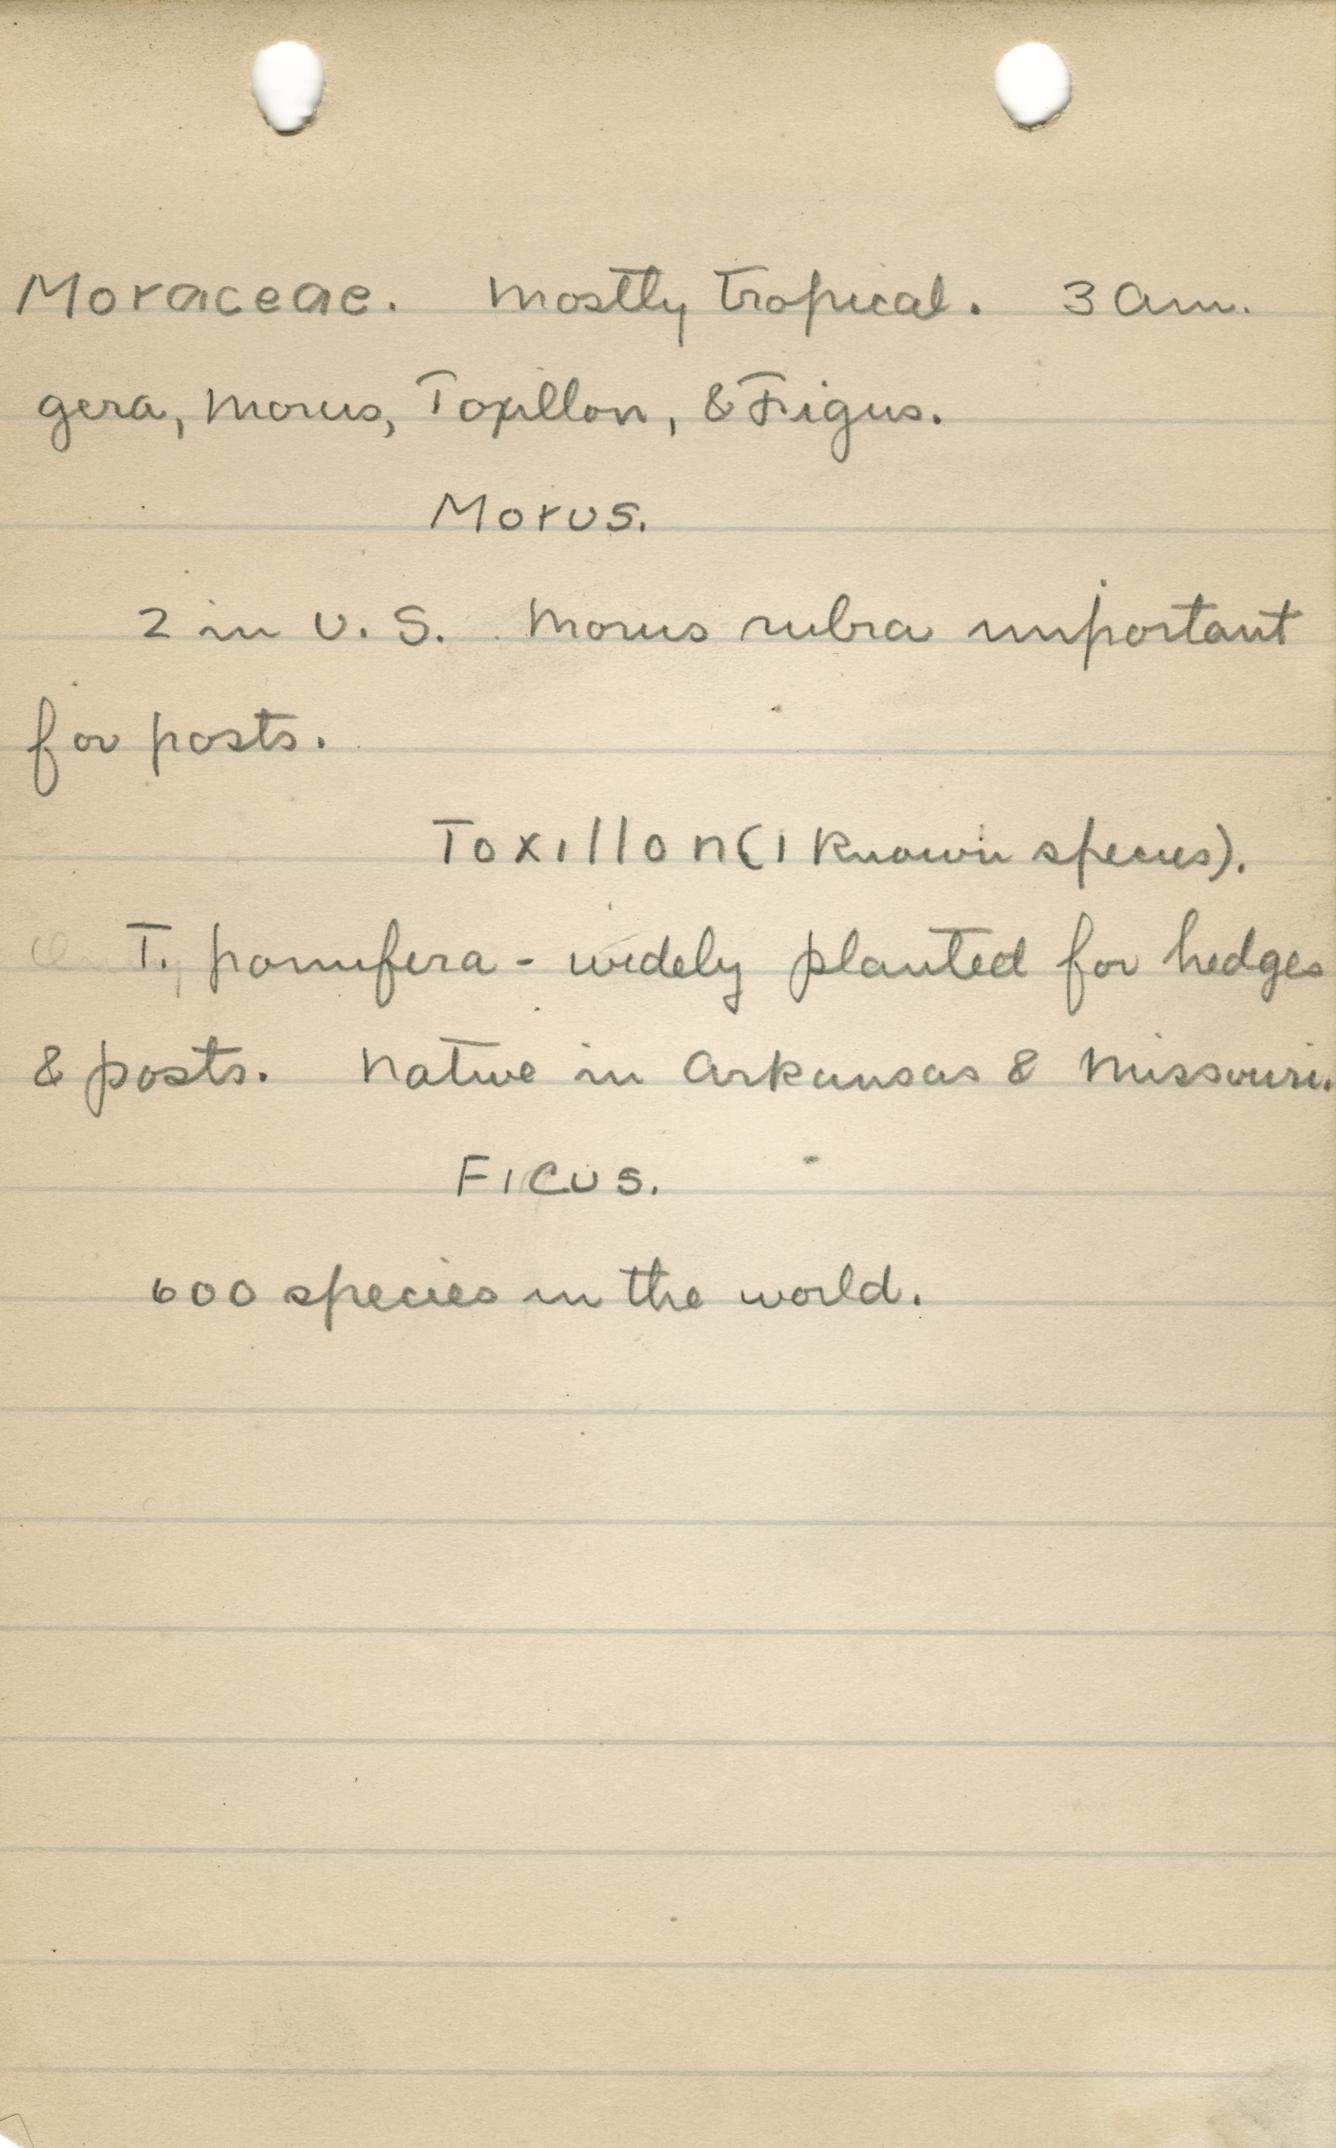 Moraceae. Mostly tropical. 3 Am.
gera, Morus, Toxillon, & Figus.
Morus.
2 in U. S. Morus rubra important
for posts.
Toxillon (1 known species).
T. pomifera - widely planted for hedges
& posts. Native in Arkansas & Missouri.
Ficus.
600 species in the world.